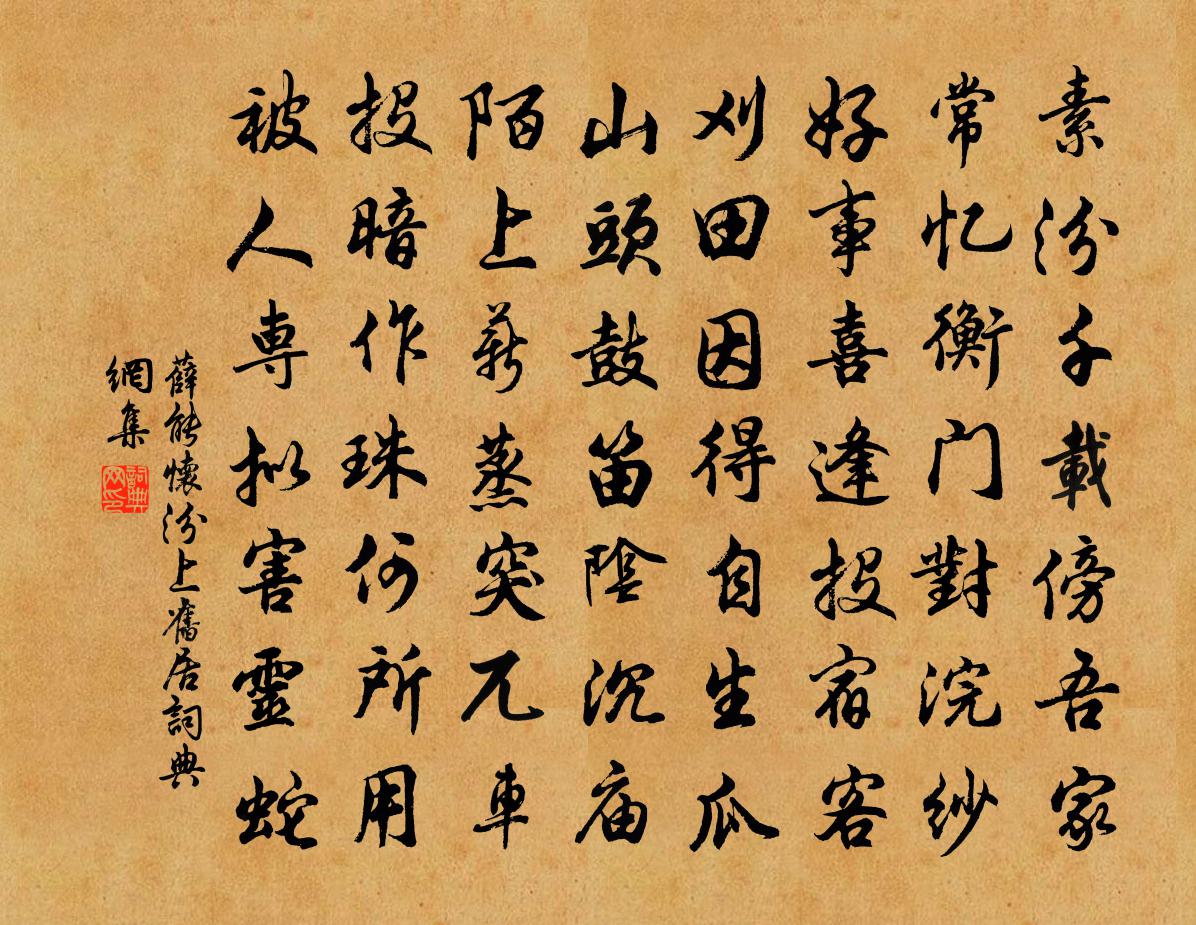 素汾千載傍吾家
常忆衡门對浣纱
好事喜逢投宿客
刈田因得自生瓜
山頭鼓笛陰沉庙
陌上薪蒸突兀車
投暗作珠何所用
被人専拟害靈蛇
薛能懷汾上舊居詞典
網集
詞典